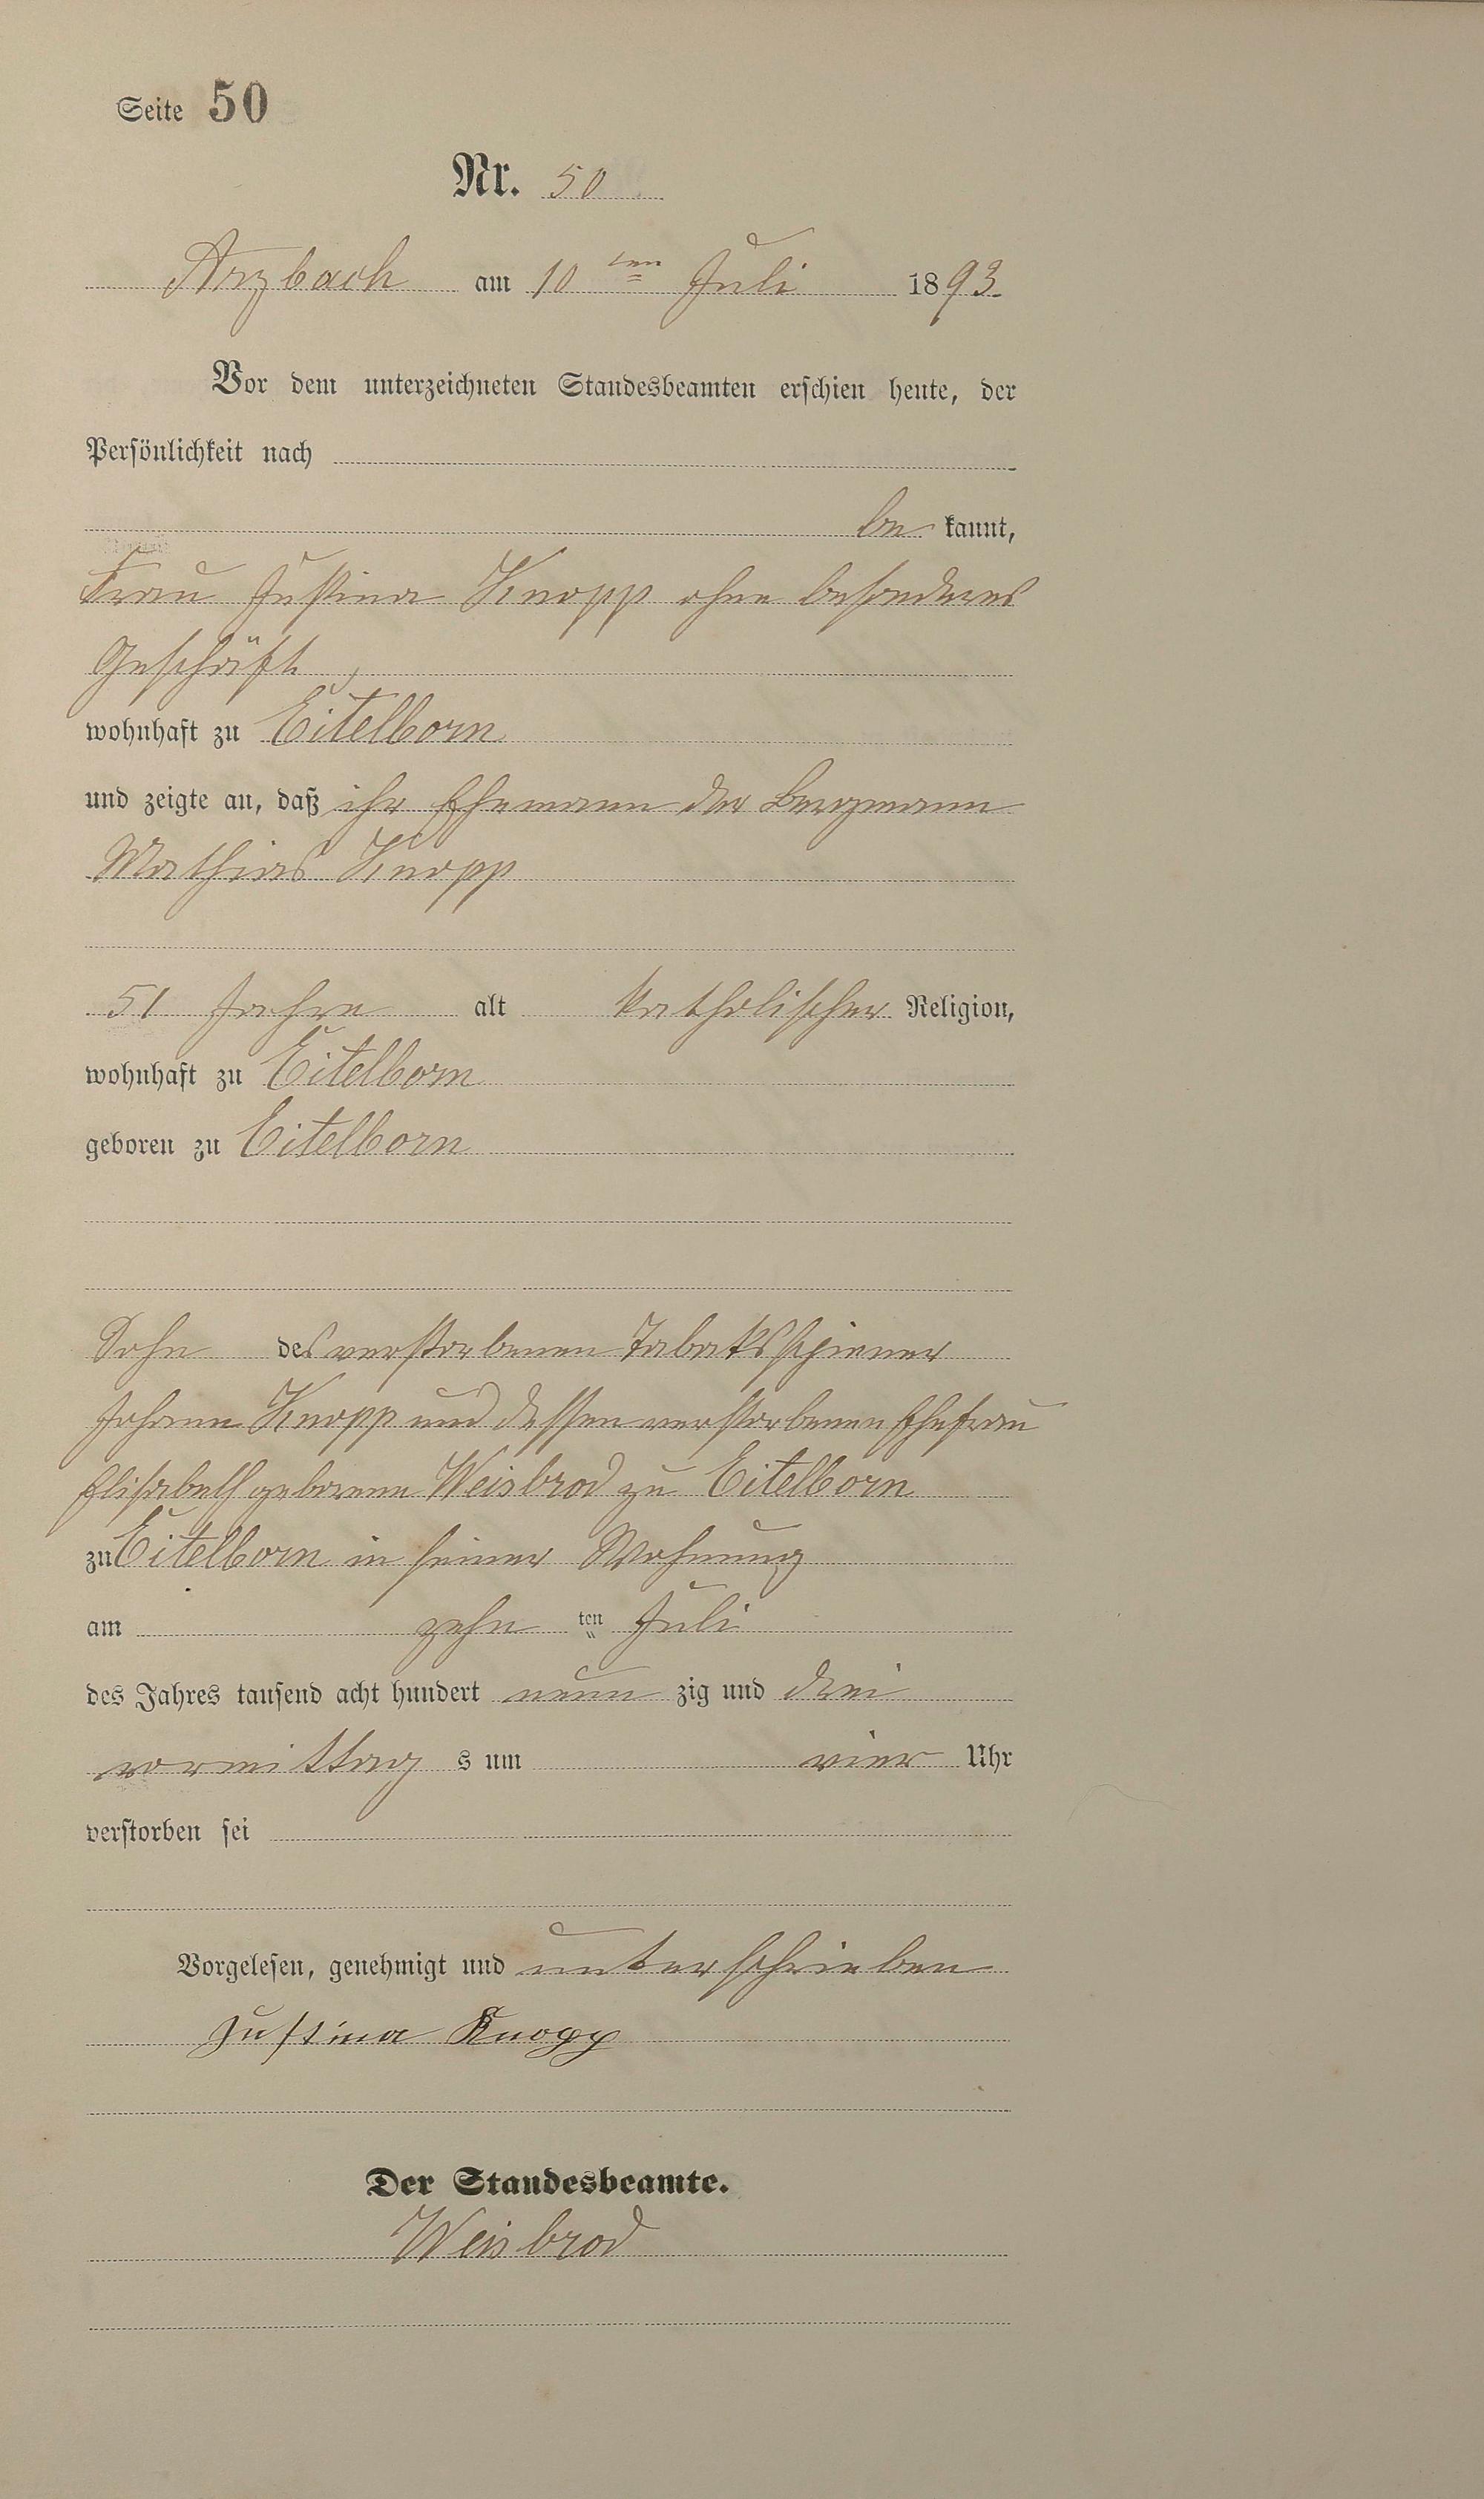 Seite 50
Nr. 50
Arzbach am 10ten Juli 1893.
Vor dem unterzeichneten Standesbeamten erschien heute, der
Persönlichkeit nach
be kannt,
Frau Justina Knopp ohne besonderes
Geschäft,
wohnhaft zu Eitelborn
und zeigte an, daß ihr Ehemann der Bergmann
Mathias Knopp
51 Jahre alt katholischer Religion,
wohnhaft zu Eitelborn
geboren zu Eitelborn
Sohn des verstorbenen Tabaksspinner
Johann Knopp und dessen verstorbenen Ehefrau
Elisabeth geborene Weisbrod zu Eitelborn
zu Eitelborn in seiner Wohnung
am zehn ten Juli
des Jahres tausend acht hundert neun zig und drei
vormittag s um vier Uhr
verstorben sei
Vorgelesen, genehmigt und unterschrieben
Justina Knopp
Der Standesbeamte.
Weisbrod